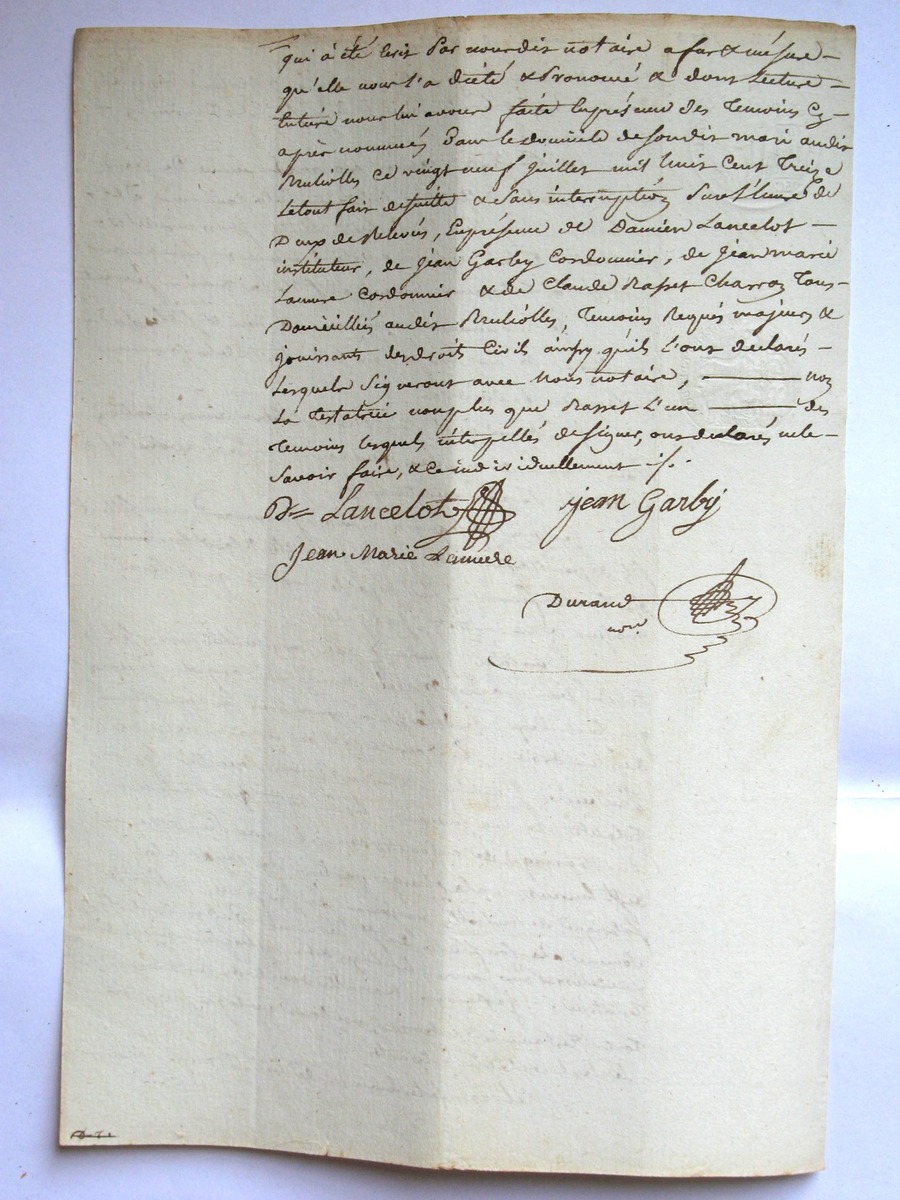 qui à été Ecrit Par nous dit notaire a fur & mésure —
qu'elle nous l'a dicté & Prononcé & dont Lecture —
Entière nous lui avons faite En présence des Temoins Cy —
après nommés Dans le domicile de son dit mari audit
Brulliolles ce vingt neuf Juillet mil huit Cent Treize
Le tout fait de suitte & sans intérruption Sur l'heure de
Deux de Relevée, En présence de Damien Lancelot —
instituteur, de Jéan Garby Cordonnier, de Jéan marie
Lamure Cordonnier & de Claude Rasset Charron Tous —
Domiciliés audit Brulliolles, Temoins Requis majeurs &
jouissants des droits Civils ainsy qu'ils L'ont declarés —
Lesquels Signeront avec Nous notaire, ——— non
La Testatrice non plus que Rasset L'un ——— des
Temoins lesquels intérpellés de signer, ont declarés ne le —
Savoir faire, & ce individuellement ·/·
Dn Lancelot jean Garby
Jean Marie Lamure
Durand
nore